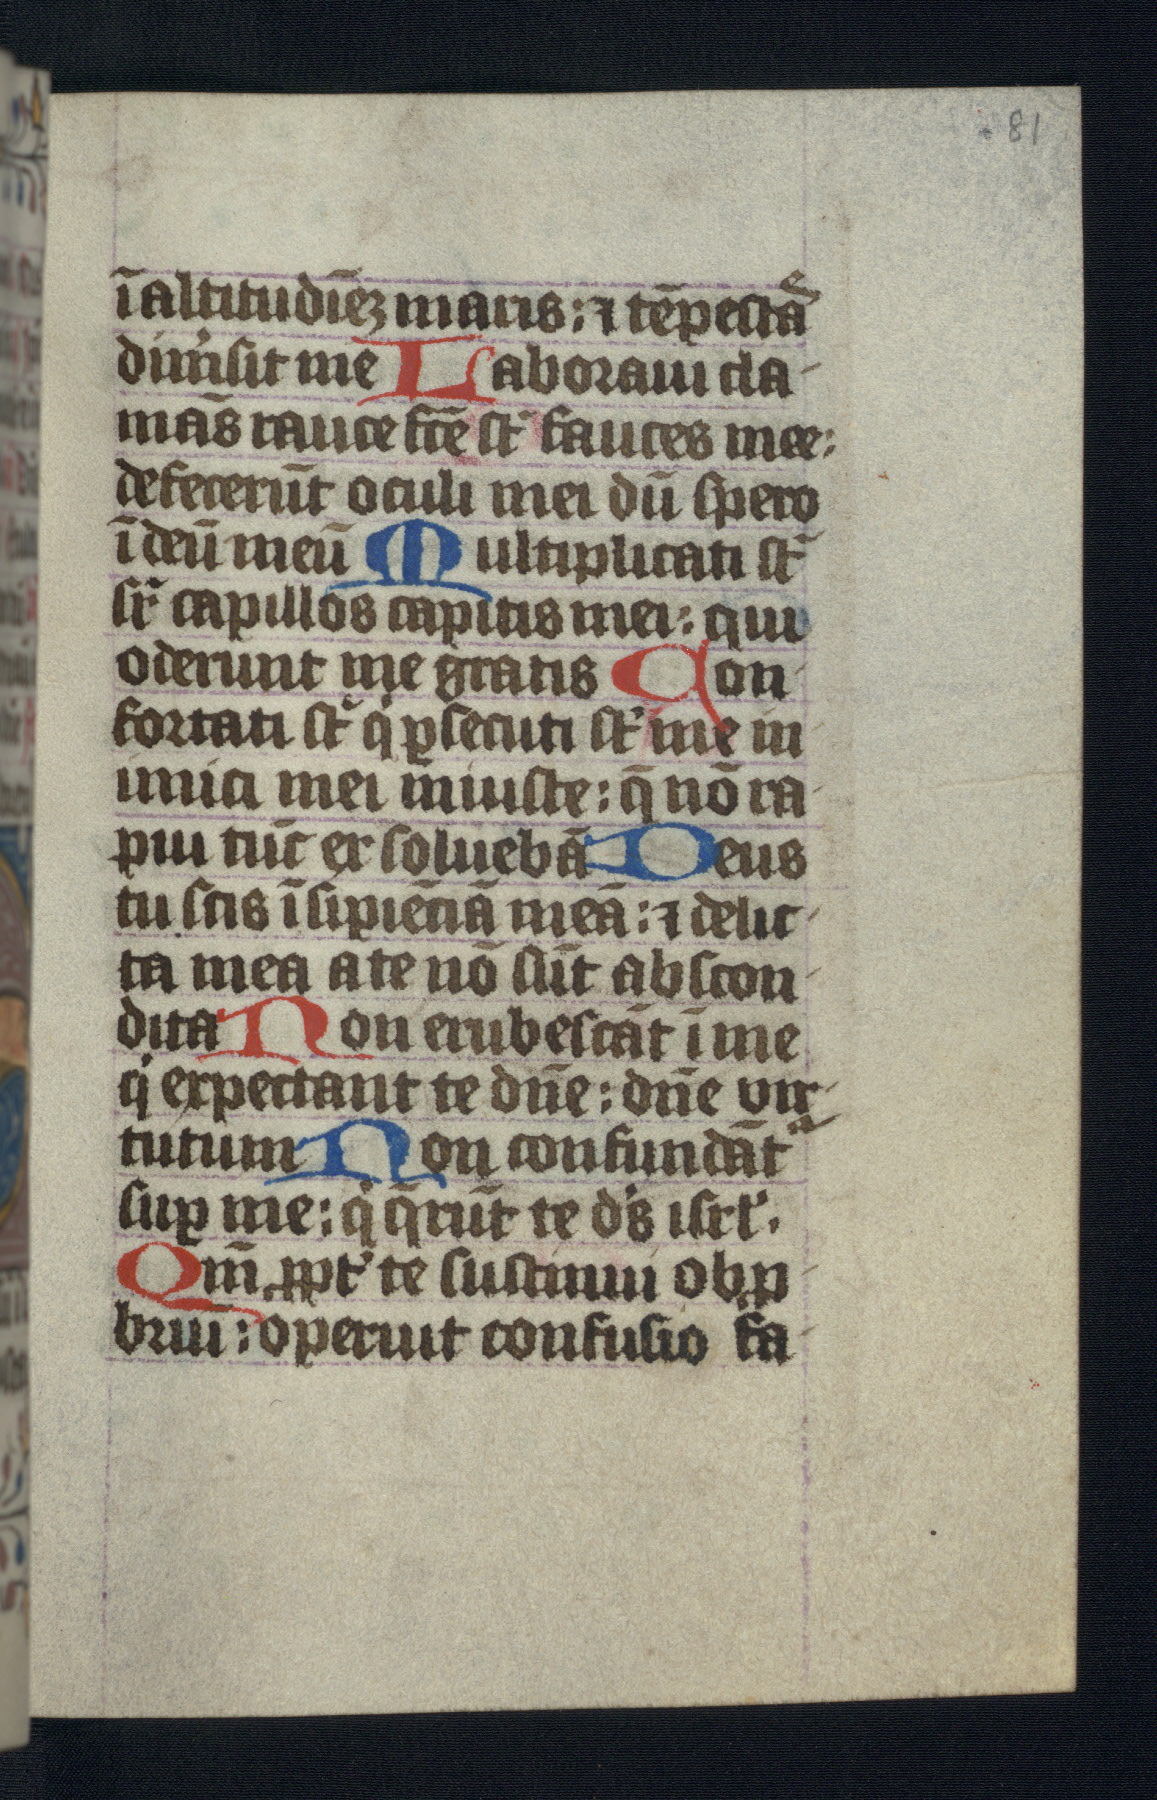 81
ī altitudīez maris : ⁊ tēpestaˢ
dimͥsit me Laboraui cla-
mās rauce fcē st̄ fauces mee :
defecerūt oculi mei dū spero
ī deū meū Multiplicati st̄
sr̄ capillos capitis mei : qui
oderunt me gratis Con-
fortati st̄ qͥ ꝑsecuti st̄ me in
imici mei iniuste : q̄ nō ra-
pui tūc exsoluebā Deus
tu scis īsipiēciā meā : ⁊ delic-
ta mea a te nō sūt abscon-
dita Non erubescāt ī me
qͥ expectant te dn̄e : dn̄e vir-
tutum Non confundāt̄
suꝑ me : qͥ q̄rūt te ds̄ isrl̄.
Qm̄ ꝓpt̄ te sustinui obꝓ-
briū : operuit confusio fa-